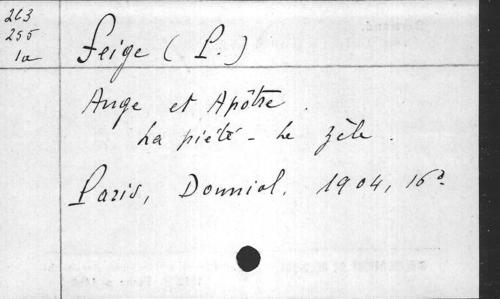 263
255
1a
Feige (P.)
Ange et Apôtre.
La piété - Le zèle.
Paris, Douniol, 1904, 16°.